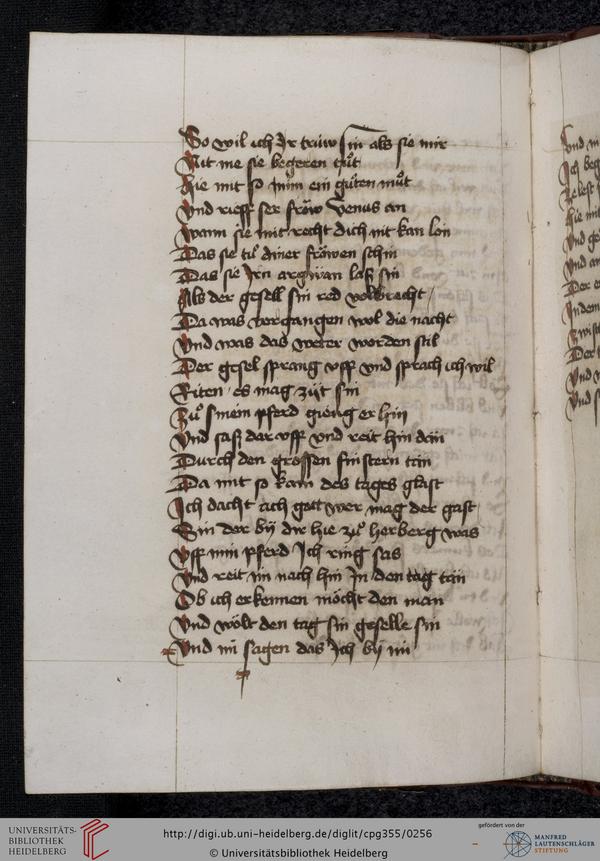 So wil ich Ir trüw sin als sie mir
Mit me sie begeren tuͦt
Hie mit so nim ein guͦten muͦt
Vnd rieff ser fröw Venus an
Wann sie mit recht dich nit kan lon
Das sie tuͦ diner fröwen schin
Das sie Irn argwan laß sin
Als der gesell sin red volbracht
Da was vergangen wol die nacht
Vnd was das weter worden stil
Der gesel sprang vff vnd sprach ich wil
Riten es mag zijt sin
Zuͦ sinem pferd gieng er hin
Vnd saß dar vff vnd reit hin
Durch den grossen finstern tan
Da mit so kam des tages glast
Ich dacht ach gott wer mag der gast
Sin der bij dir hie zuͦ herberg was
Vff min pferd Ich ring sas
Vnd reit im nach hin In den tag
Ob ich erkennen möcht den man
Vnd wolt den tag sin geselle sin
Vnd im sagen das Ich bij im
vnd
Ich
Hie mit
Vnd
Vnd
Der
Indem
Der
Vnd
Vnd
UNIVERSITÄTS-
BIBLIOTHEK
HEIDELBERG
http://digi.ub.uni-heidelberg.de/diglit/cpg355/0256
© Universitätsbibliothek Heidelberg
gefördert von der
MANFRED
LAUTENSCHLÄGER
STIFTUNG